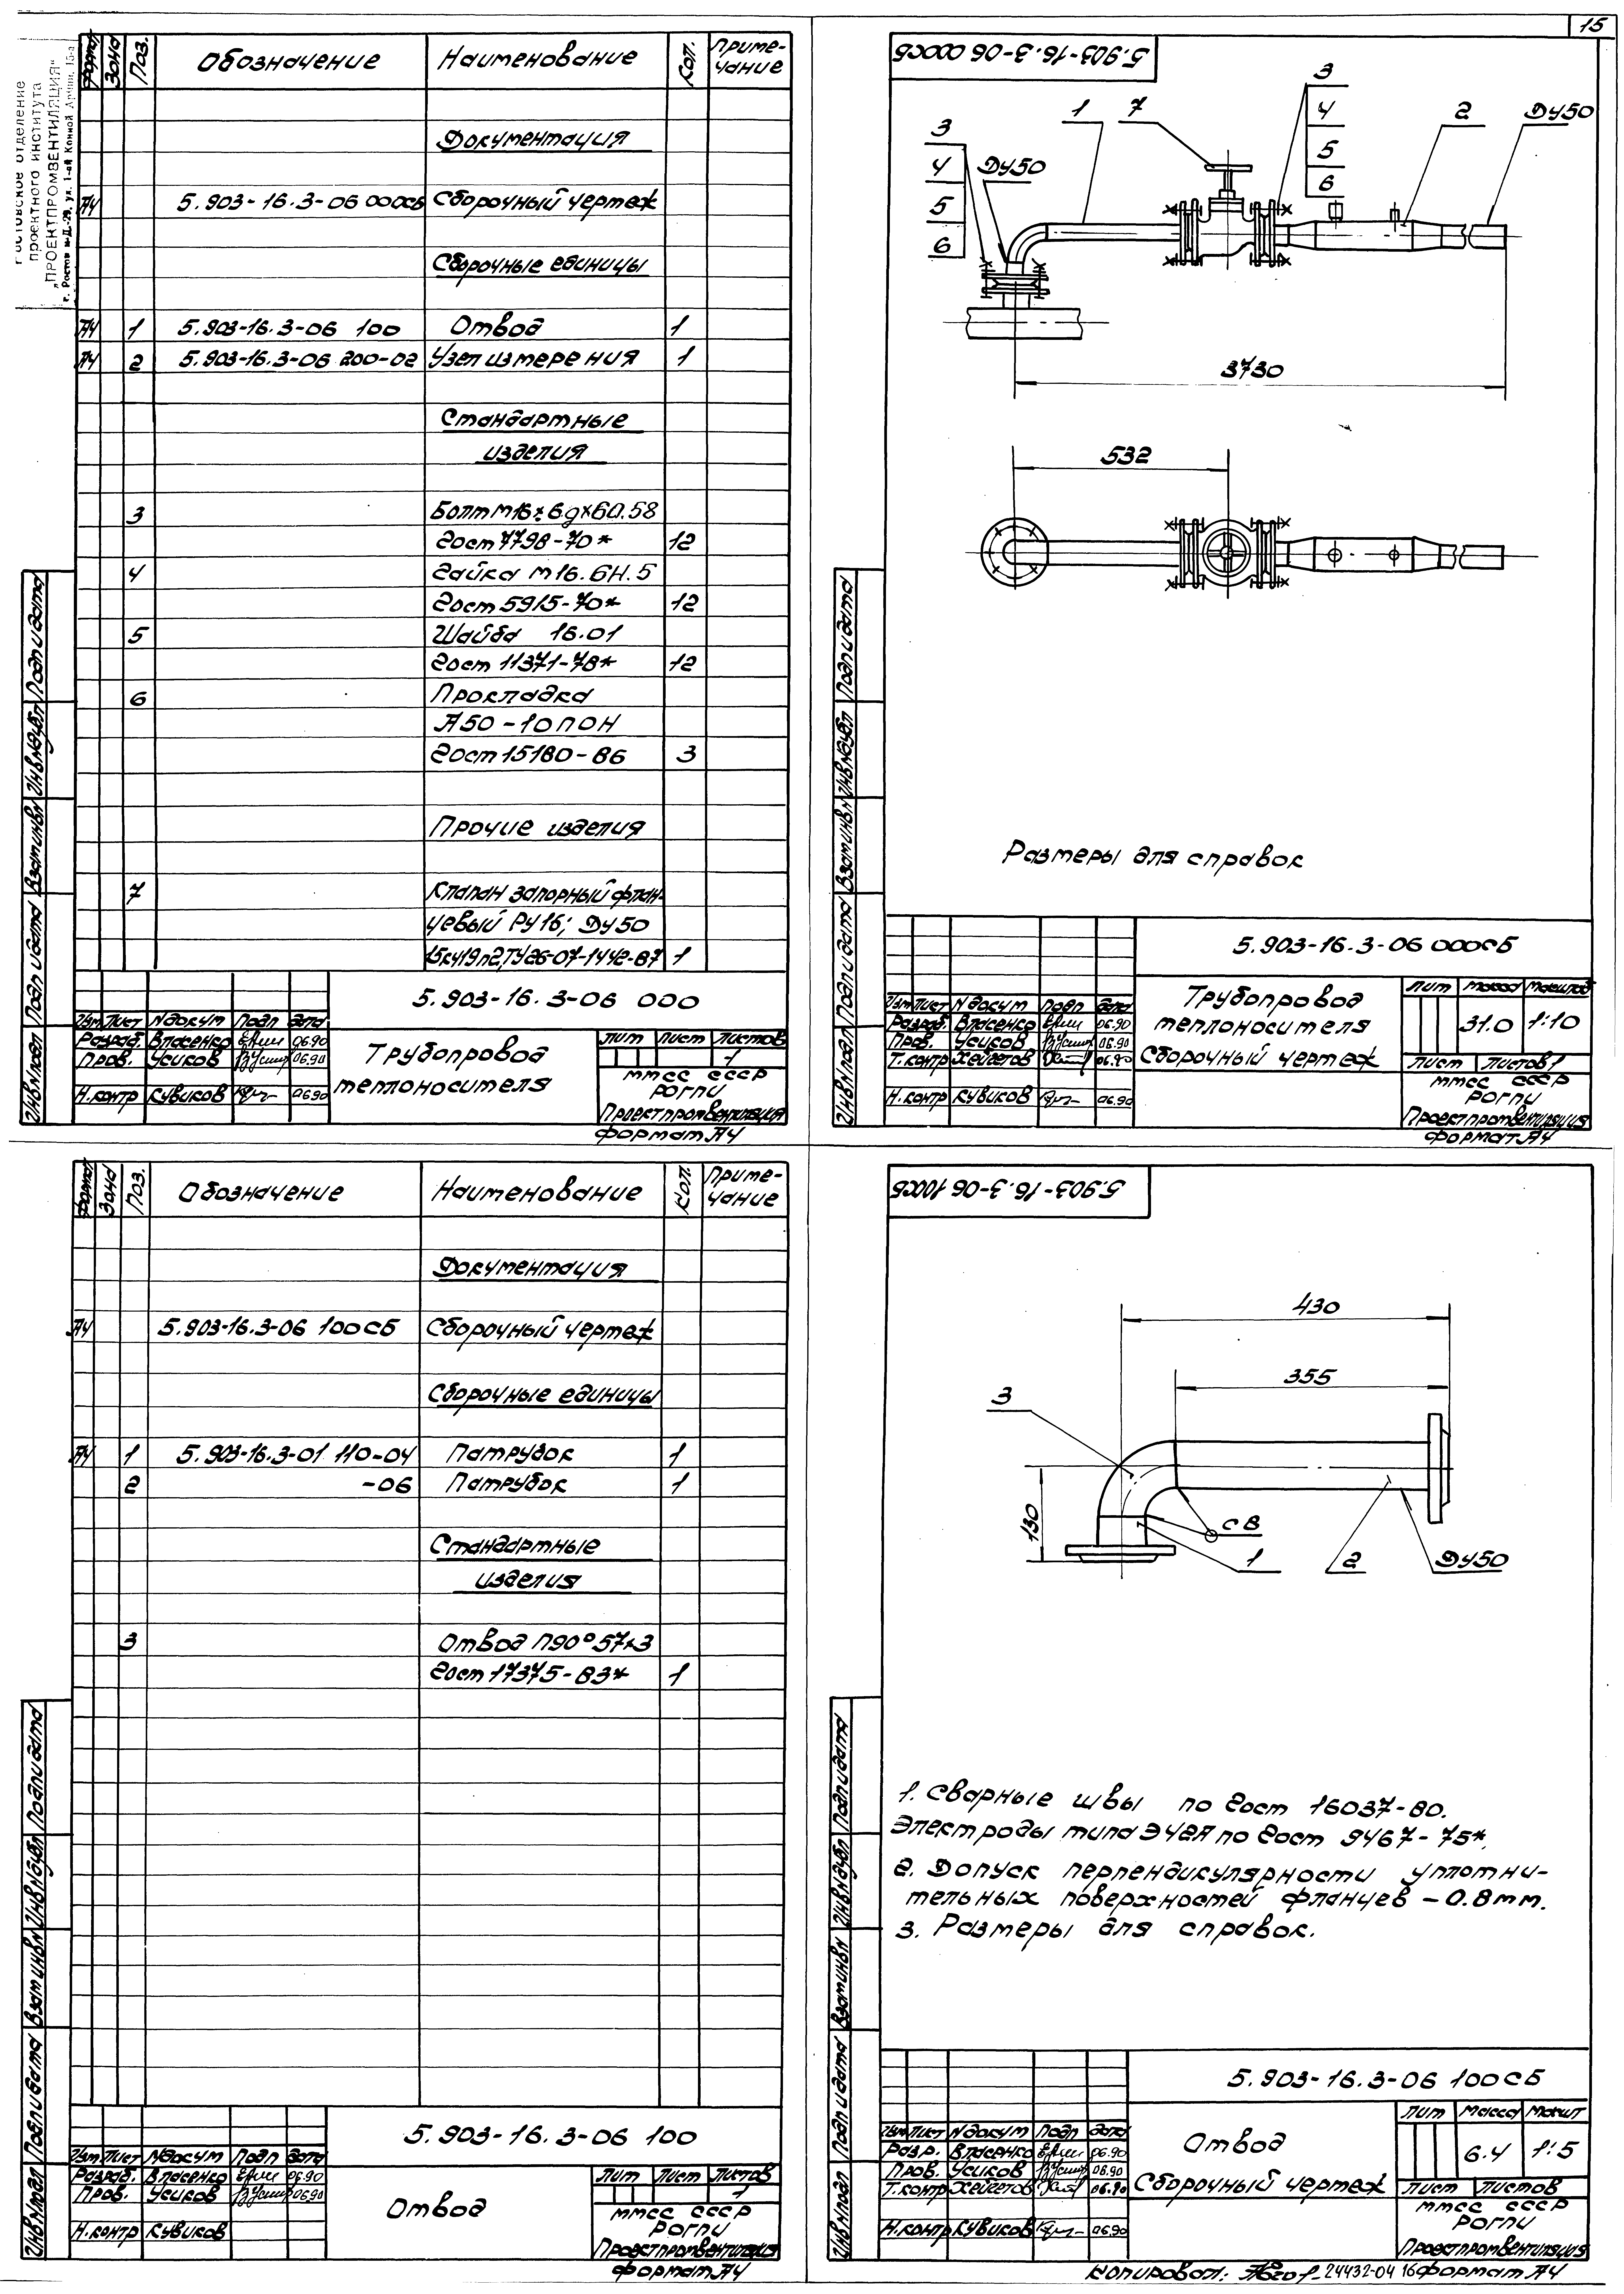 15
Ростовское отделение
проектного института
„ПРОЕКТПРОМВЕНТИЛЯЦИЯ"
г. Ростов н-Д.-29, ул. 1-ой Конной Армии, 15-а
Формат Зона Поз. Обозначение Наименование Кол. Приме-
чание
Документация
А4 5.903-16.3-06 000СБ Сборочный чертеж
Сборочные единицы
А4 1 5.903-16.3-06 100 Отвод 1
А4 2 5.903-16.3-06 200-02 Узел измерения 1
Стандартные
изделия
3 Болт М16 6gх60.58
Гост 7798-70* 12
4 Гайка М16.6Н.5
Гост 5915-70* 12
5 Шайба 16.01
Гост 11371-78* 12
6 Прокладка
А50-10ПОН
Гост 15180-86 3
Прочие изделия
7 Клапан запорный флан-
цевый Ру16; Ду50
15кч19п2, ТУ26-07-1442-87 1
5.903-16.3-06 000
Изм Лист N докум Подп Дата
Разраб. Власенко 06.90
Пров. Усиков 06.90
Н.контр Кувиков 06.90
Трубопровод
теплоносителя
Лит Лист Листов
1
ММСС СССР
РОГПИ
Проектпромвентиляция
Формат А4
Инв N подл Подп и дата Взам инв N Инв N дубл Подп и дата
5.903-16.3-06 000СБ
3
4
5
6
Ду50
1
7
3
4
5
6
2
Ду50
3730
532
Размеры для справок
5.903-16.3-06 000СБ
Изм Лист N докум Подп Дата
Разраб. Власенко 06.90
Пров. Усиков 06.90
Т.контр Хейгетов 06.90
Н.контр Кувиков 06.90
Трубопровод
теплоносителя
Сборочный чертеж
Лит Масса Масштаб
31.0 1:10
Лист Листов 1
ММСС СССР
РОГПИ
Проектпромвентиляция
Формат А4
Инв N подл Подп и дата Взам инв N Инв N дубл Подп и дата
Формат Зона Поз. Обозначение Наименование Кол. Приме-
чание
Документация
А4 5.903-16.3-06 100СБ Сборочный чертеж
Сборочные единицы
А4 1 5.903-16.3-01 110-04 Патрубок 1
2 -06 Патрубок 1
Стандартные
изделия
3 Отвод П90° 57х3
Гост 17375-83* 1
5.903-16.3-06 100
Изм Лист N докум Подп Дата
Разраб. Власенко 06.90
Пров. Усиков 06.90
Н.контр Кувиков
Отвод
Лит Лист Листов
1
ММСС СССР
РОГПИ
Проектпромвентиляция
Формат А4
Инв N подл Подп и дата Взам инв N Инв N дубл Подп и дата
5.903-16.3-06 100СБ
430
355
3
130
СВ
1
2
Ду50
1. Сварные швы по Гост 16037-80.
Электроды типа Э42А по Гост 9467-75*.
2. Допуск перпендикулярности уплотни-
тельных поверхностей фланцев – 0.8мм.
3. Размеры для справок.
5.903-16.3-06 100СБ
Изм Лист N докум Подп Дата
Разр. Власенко 06.90
Пров. Усиков 06.90
Т.контр Хейгетов 06.90
Н.контр Кувиков 06.90
Отвод
Сборочный чертеж
Лит Масса Масшт
6.4 1:5
Лист Листов
ММСС СССР
РОГПИ
Проектпромвентиляция
Копировал: 24432-04 16 Формат А4
Инв N подл Подп и дата Взам инв N Инв N дубл Подп и дата